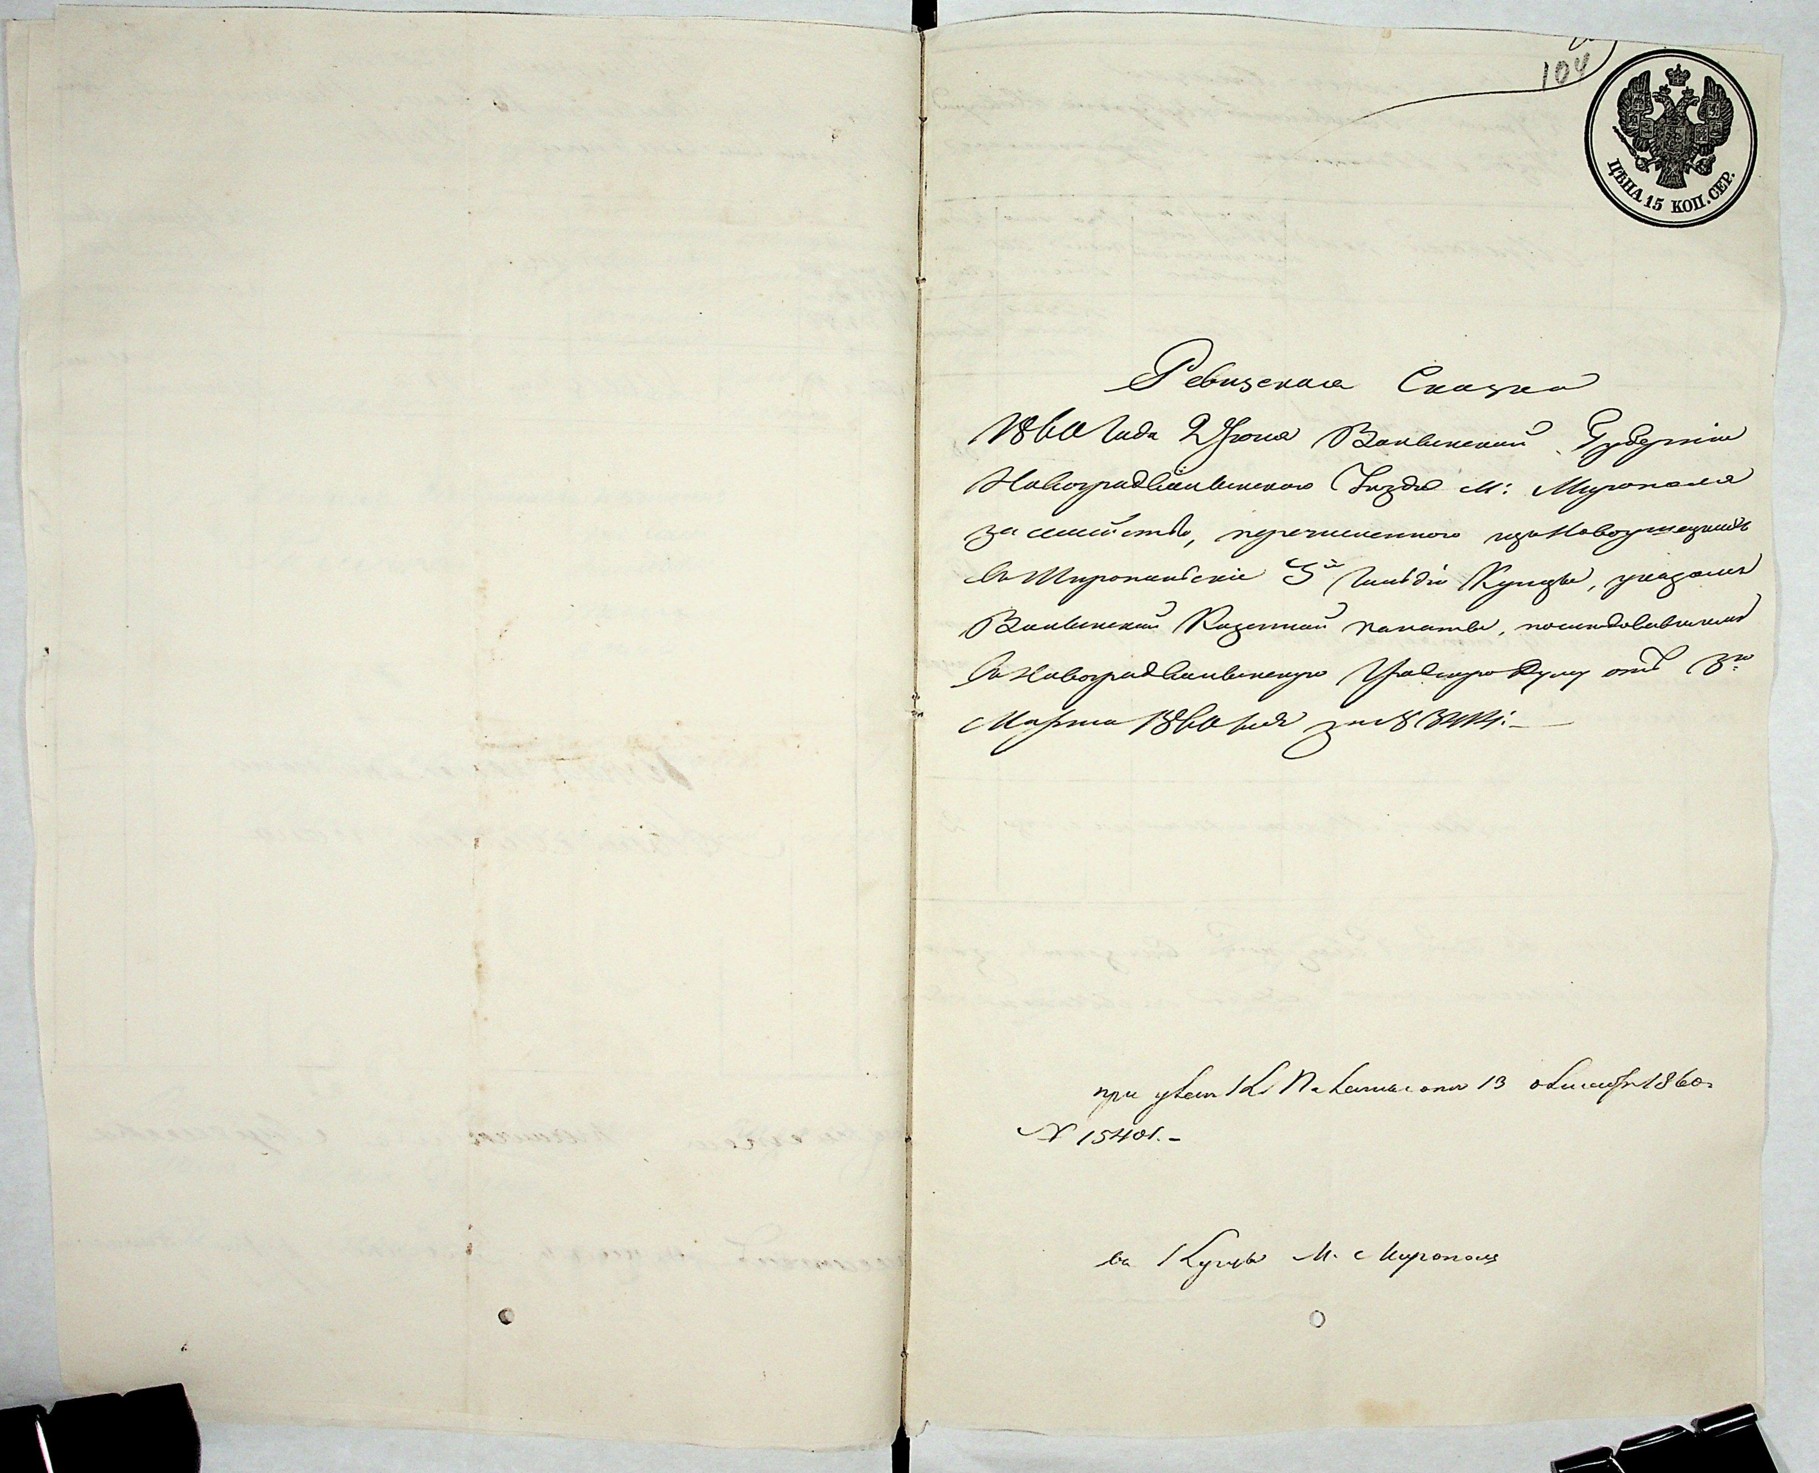 104
ЦѢНА 15 КОП. СЕР.
Ревизская Сказка
1860 года Июня Волынской Губернии
Новоградволынского Уезда М: Мирополя
за семейство, перечисленного изъ Новоушецкихъ
въ Миропольские 3й гильдіи Купцы, указомъ
Волынской Казенной палаты, последовавшимъ
въ Новоградволынскую Градскую Думу отъ 3го
Марта 1860 года за №
при указе К. Палаты отъ 13 октября 1860 г.
№ 15401.-
въ Купцы М. Мирополя